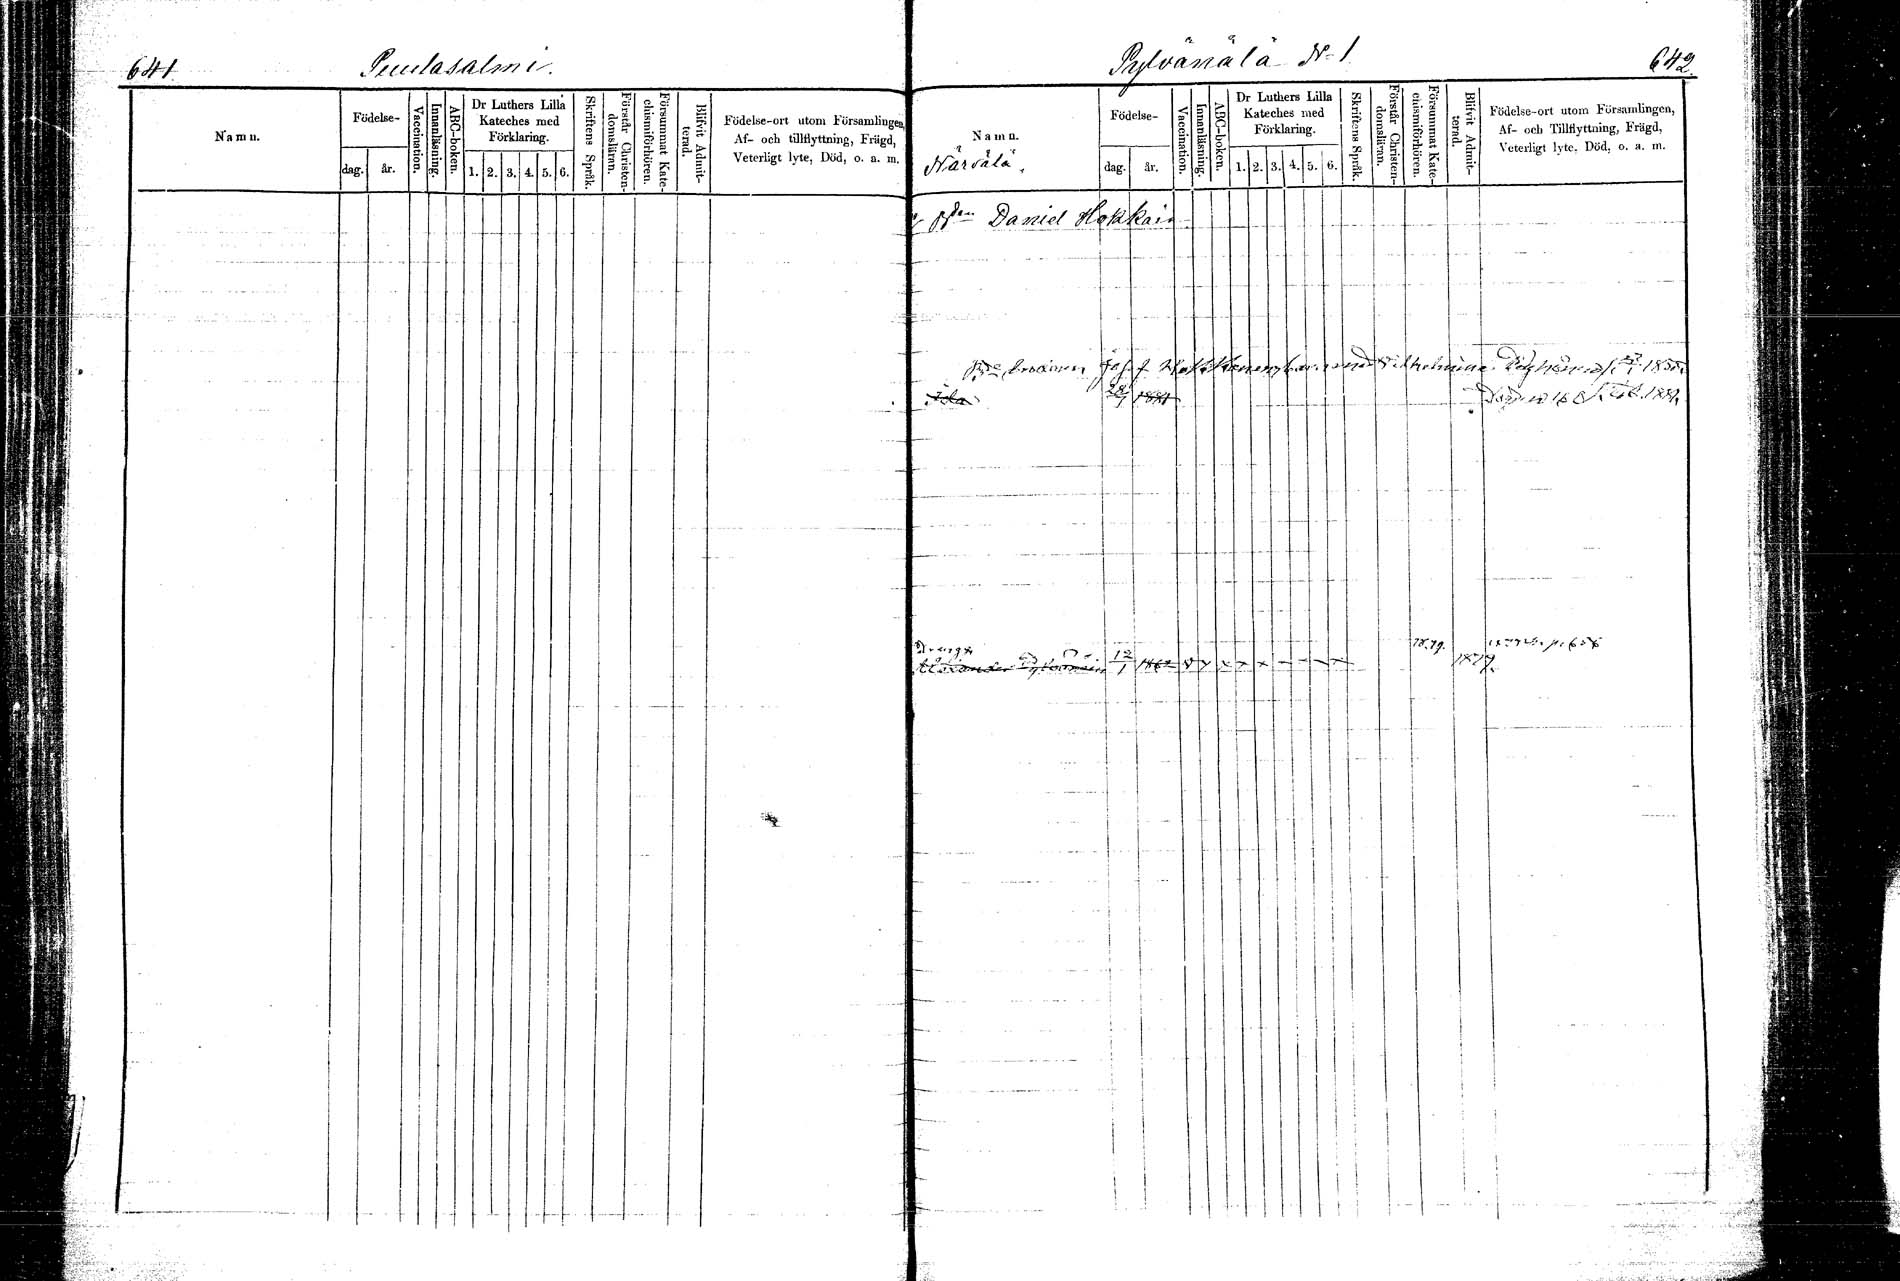 641
Puulasalmi.
Namn.
Födelse-
dag.
år.
Vaccination.
Innanläsning.
ABC-boken.
Dr Luthers Lilla
Kateches med
Förklaring.
1. 2. 3. 4. 5. 6.
Skriftens Språk.
Förstår Christen-
domsläran.
Försummat Kate-
chismiförhören.
Blifvit Admit-
terad.
Födelse-ort utom Församlingen,
Af- och tillflyttning, Frägd,
Veterligt lyte, Död, o. a. m.
Pylvänälä No 1
642.
Namn.
Närvälä.
Födelse-
dag.
år.
Vaccination.
Innanläsning.
ABC-boken.
Dr Luthers Lilla
Kateches med
Förklaring.
1. 2. 3. 4. 5. 6.
Skriftens Språk.
Förstår Christen-
domsläran.
Försummat Kate-
chismiförhören.
Blifvit Admit-
terad.
Födelse-ort utom Församlingen,
Af- och Tillflyttning, Frägd,
Veterligt lyte, Död, o. a. m.
Daniel Hokkain
Josef Hokkanens barn med Wilhelmina
Ida 28/1 1881
Dräng
Alexander 12/1 1862
1879.
1879.